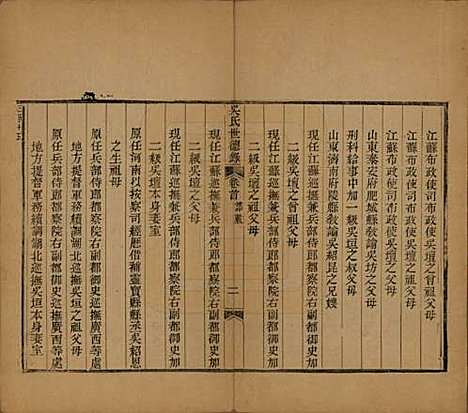 江蘇布政使司布政使吳壇之曾祖父母
江蘇布政使司布政使吳壇之祖父母
刑科給事中加一級吳壇之叔父母
山東泰安府肥城縣敎諭吳坊之父母
山東濟南府陵縣敎諭吳紹昆之兄嫂
現任江蘇巡撫兼兵部侍郎都察院右副都御史加
二級吳壇之曾祖父母
現任江蘇巡撫兼兵部侍郎都察院右副都御史加
二級吳壇之祖父母
吳氏世德錄 卷首 二
現任江蘇巡撫兼兵部侍郎都察院右副都御史加
二級吳壇本身妻室
原任河南以按察司經歷借補靈寶縣縣丞吳紹恩
之生祖母
原任兵部侍郎都察院右副都御史巡撫廣西等處
地方提督軍務續調湖北巡撫吳垣之祖父母
原任兵部侍郎都察院右副都御史巡撫廣西等處
地方提督軍務續調湖北巡撫吳垣本身妻室